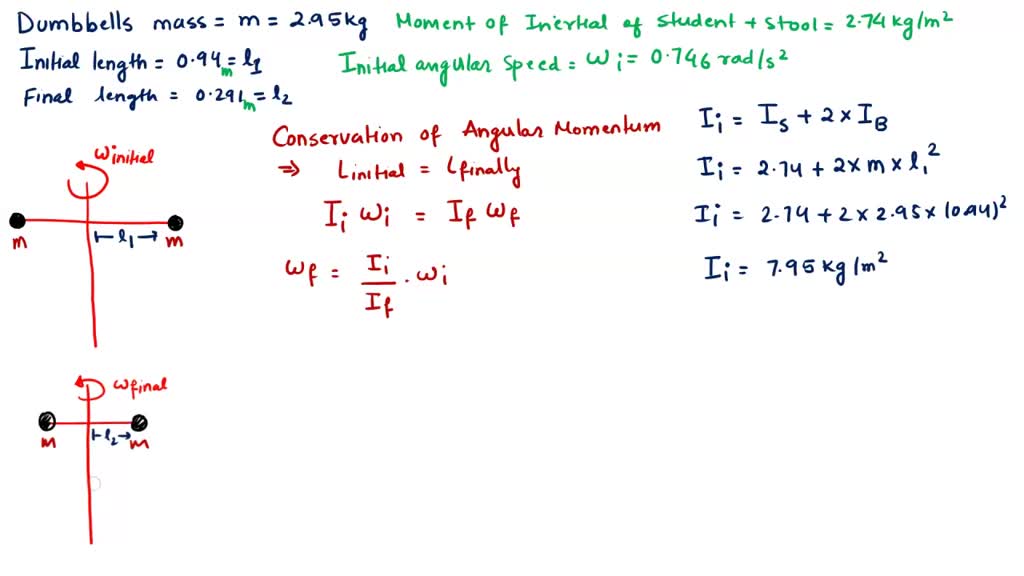 Dumbbells mass = m = 2.95kg
Moment of Inertial of student + stool = 2.74 kg/m²
Initial length = 0.94m = l1
Initial angular speed = ωi = 0.746 rad/s²
Final length = 0.291m = l2
Conservation of Angular Momentum
⇒ Linitial = Lfinally
Ii ωi = If ωf
ωf = Ii/If . ωi
Ii = IS + 2 × IB
Ii = 2.74 + 2 × m × l1²
Ii = 2.74 + 2 × 2.95 × (0.94)²
Ii = 7.95 kg/m²
ωinitial
m
⊢ l1 →
m
ωfinal
m
⊢ l2 →
m